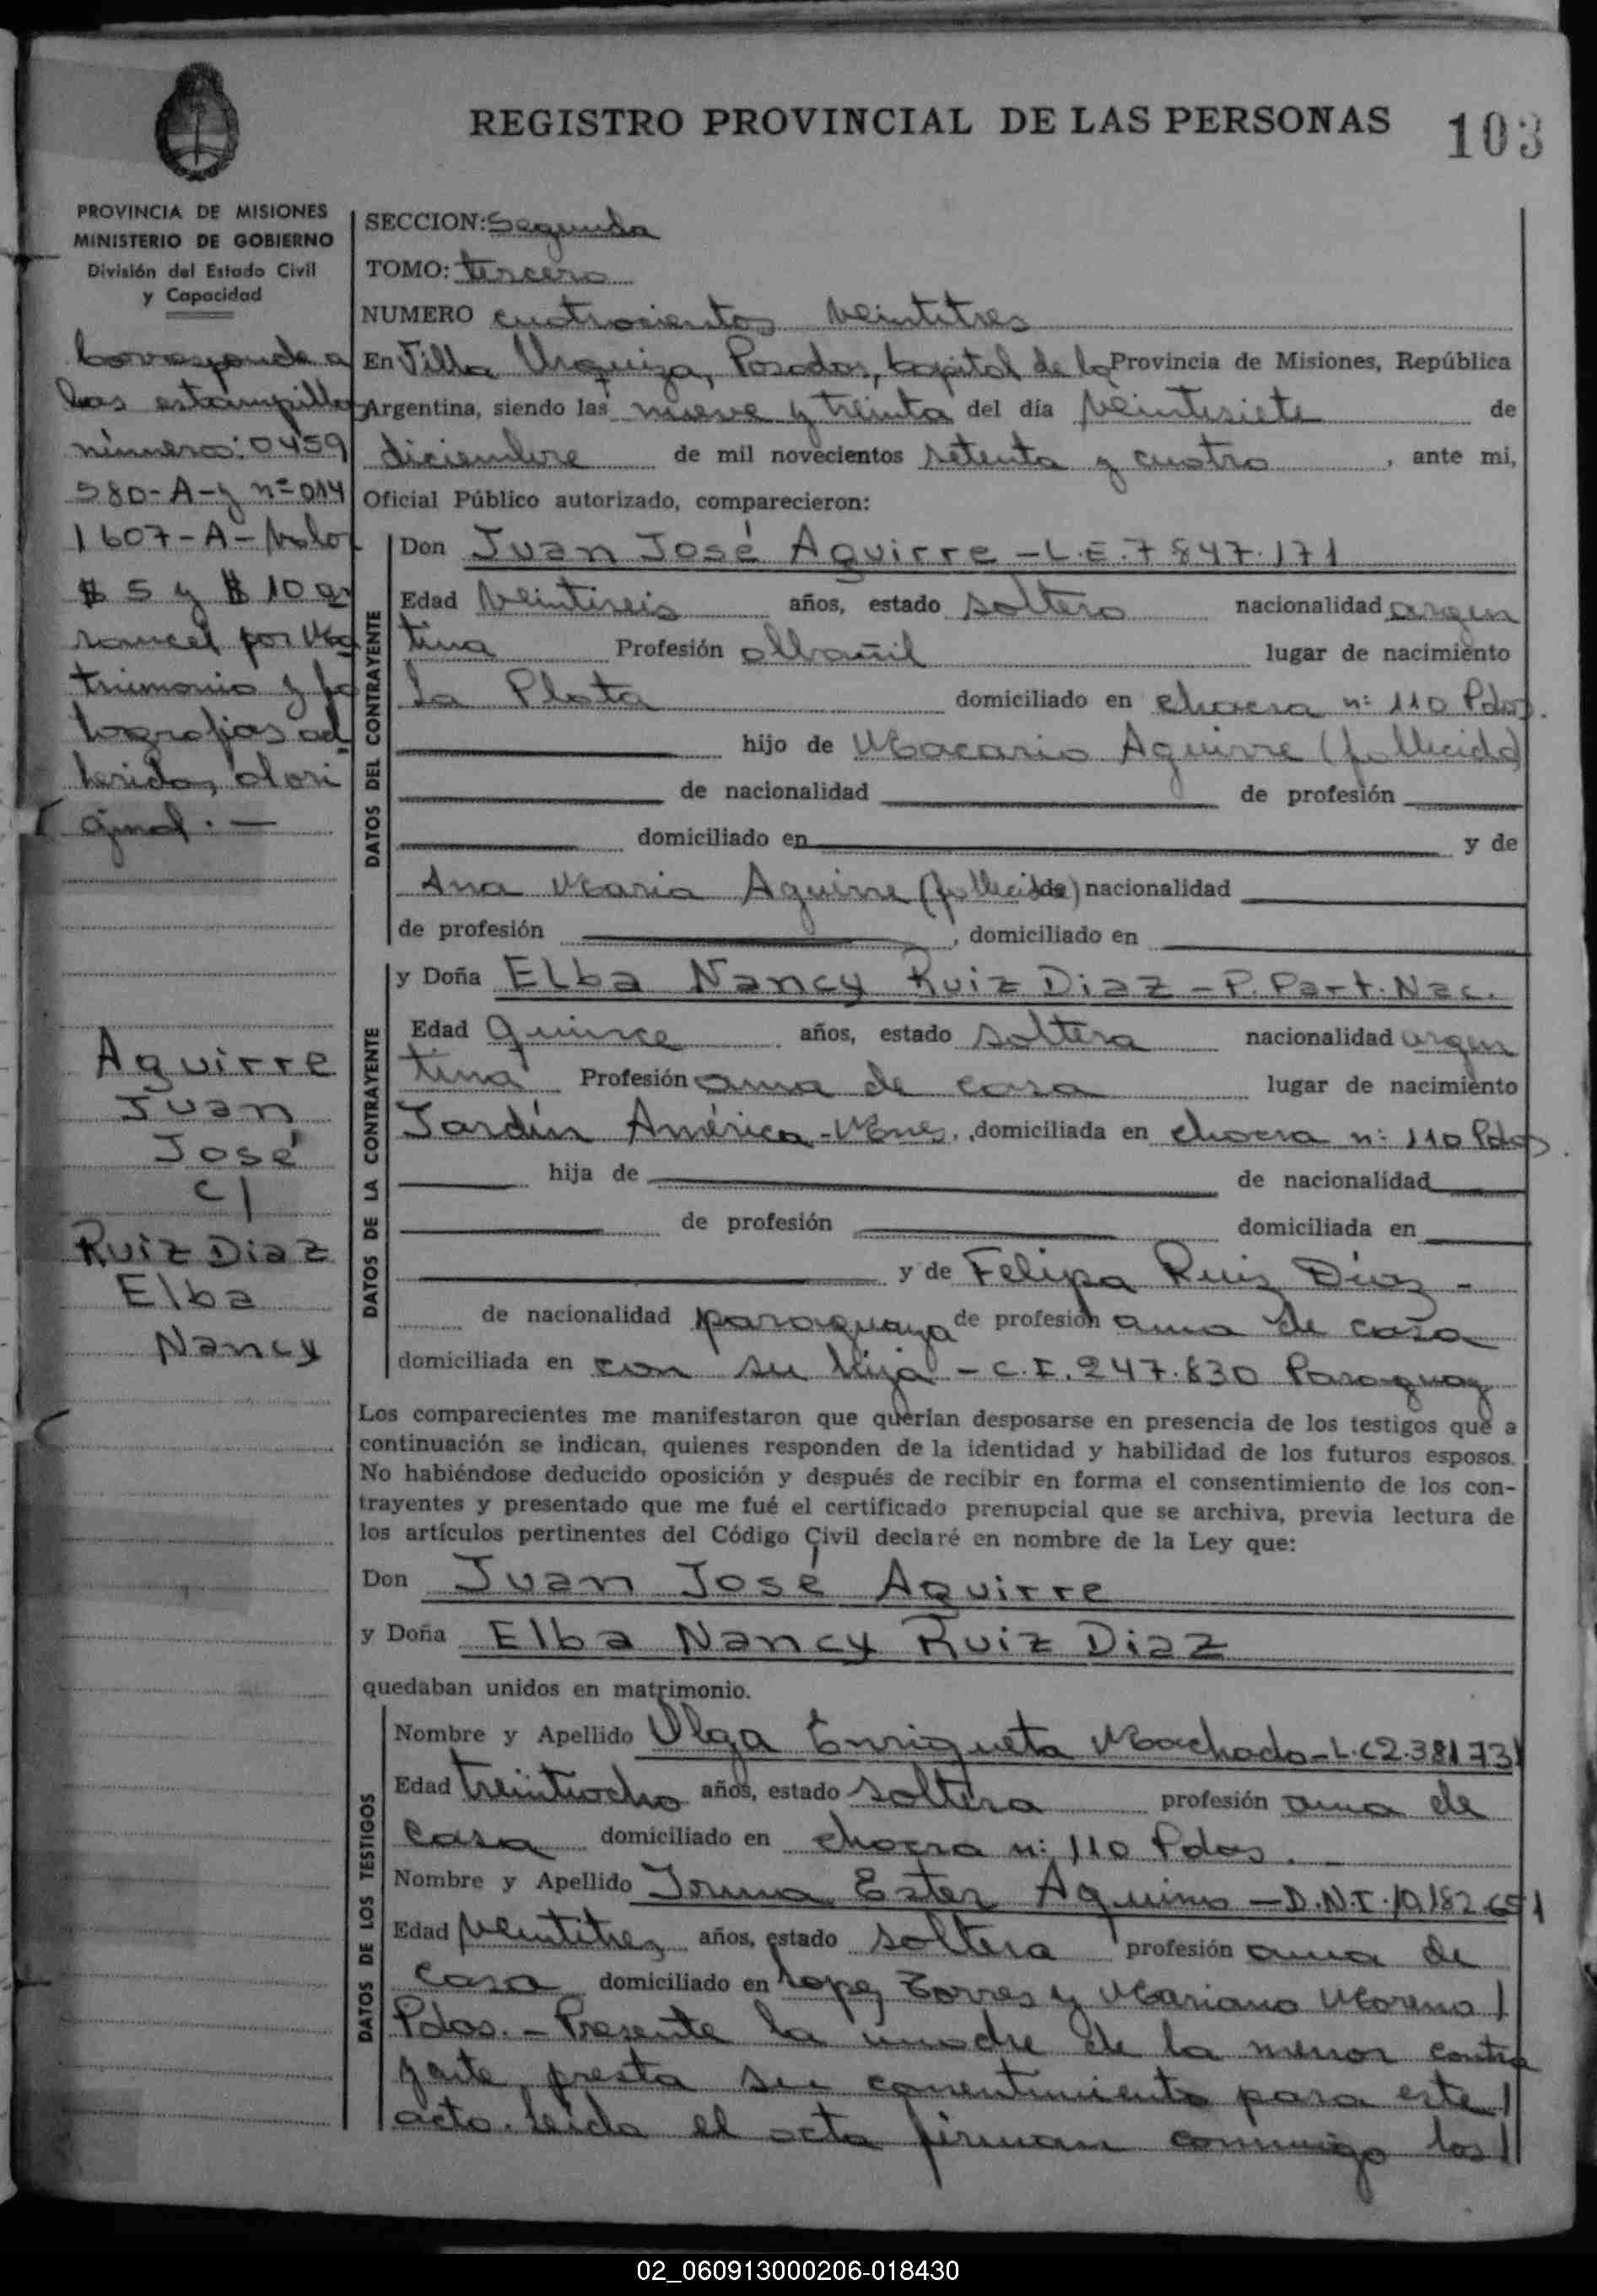 REGISTRO PROVINCIAL DE LAS PERSONAS
103
PROVINCIA DE MISIONES
MINISTERIO DE GOBIERNO
División del Estado Civil
y Capacidad
Corresponde a
las estampillas
números: 0459
580-A-y nº 014
1607-A-valor
$ 5 y $ 10 a
rancel por Ma
trimonio y fo
tografias ad
heridas al ori
ginal.-
Aguirre
Juan
José
c/
Ruiz Diaz
Elba
Nancy
SECCION: Segunda
TOMO: tercero
NUMERO cuatrocientos veintitres
En Villa Urquiza, Posadas, Capital de la Provincia de Misiones, República
Argentina, siendo las nueve y treinta del día veintisiete de
diciembre de mil novecientos setenta y cuatro, ante mi,
Oficial Público autorizado, comparecieron:
DATOS DEL CONTRAYENTE
Don Juan José Aguirre - L.E. 7847.171
Edad veintiseis años, estado soltero nacionalidad argen
tina Profesión albañil lugar de nacimiento
La Plata domiciliado en chacra n: 110 Pdas.
hijo de Macario Aguirre (fallecido)
de nacionalidad de profesión
domiciliado en y de
Ana Maria Aguirre (fallecida) de nacionalidad
de profesión , domiciliado en
DATOS DE LA CONTRAYENTE
y Doña Elba Nancy Ruiz Diaz - P. Part. Nac.
Edad quince años, estado soltera nacionalidad argen
tina Profesión ama de casa lugar de nacimiento
Jardín América - Mnes., domiciliada en chacra n: 110 Pdas.
hija de de nacionalidad
de profesión domiciliada en
y de Felipa Ruiz Díaz -
de nacionalidad paraguaya de profesión ama de casa
domiciliada en con su hija - C.I. 247.830 Paraguay
Los comparecientes me manifestaron que querían desposarse en presencia de los testigos que a
continuación se indican, quienes responden de la identidad y habilidad de los futuros esposos.
No habiéndose deducido oposición y después de recibir en forma el consentimiento de los con-
trayentes y presentado que me fué el certificado prenupcial que se archiva, previa lectura de
los artículos pertinentes del Código Civil declaré en nombre de la Ley que:
Don Juan José Aguirre
y Doña Elba Nancy Ruiz Diaz
quedaban unidos en matrimonio.
DATOS DE LOS TESTIGOS
Nombre y Apellido Olga Enriqueta Machado - L.C 2.381731
Edad treintiocho años, estado soltera profesión ama de
casa domiciliado en chacra n: 110 Pdas.
Nombre y Apellido Irma Ester Aquino - D.N.I. 10.182.651
Edad veintitres años, estado soltera profesión ama de
casa domiciliado en Lopez Torres y Mariano Moreno /
Pdas. - Presente la madre de la menor contra
yente, presta su consentimiento para este /
acto. Leida el acta firman conmigo los /
02_060913000206-018430